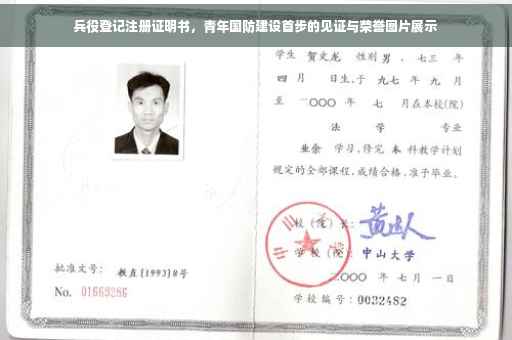 兵役登记注册证明书，青年国防建设首步的见证与荣誉图片展示
学生 贺文龙 性别男，七三 年
四 月 日生，于 九七 年 九 月
至 二〇〇〇 年 七 月在本校(院)
法 学 专业
业余 学习，修完 本 科教学计划
规定的全部课程，成绩合格，准予毕业。
校（院）长：
学校（院）：中山大学
二〇〇〇 年 七 月 一 日
学校编号：0032482
批准文号：教直(1993)8号
No. 01669286